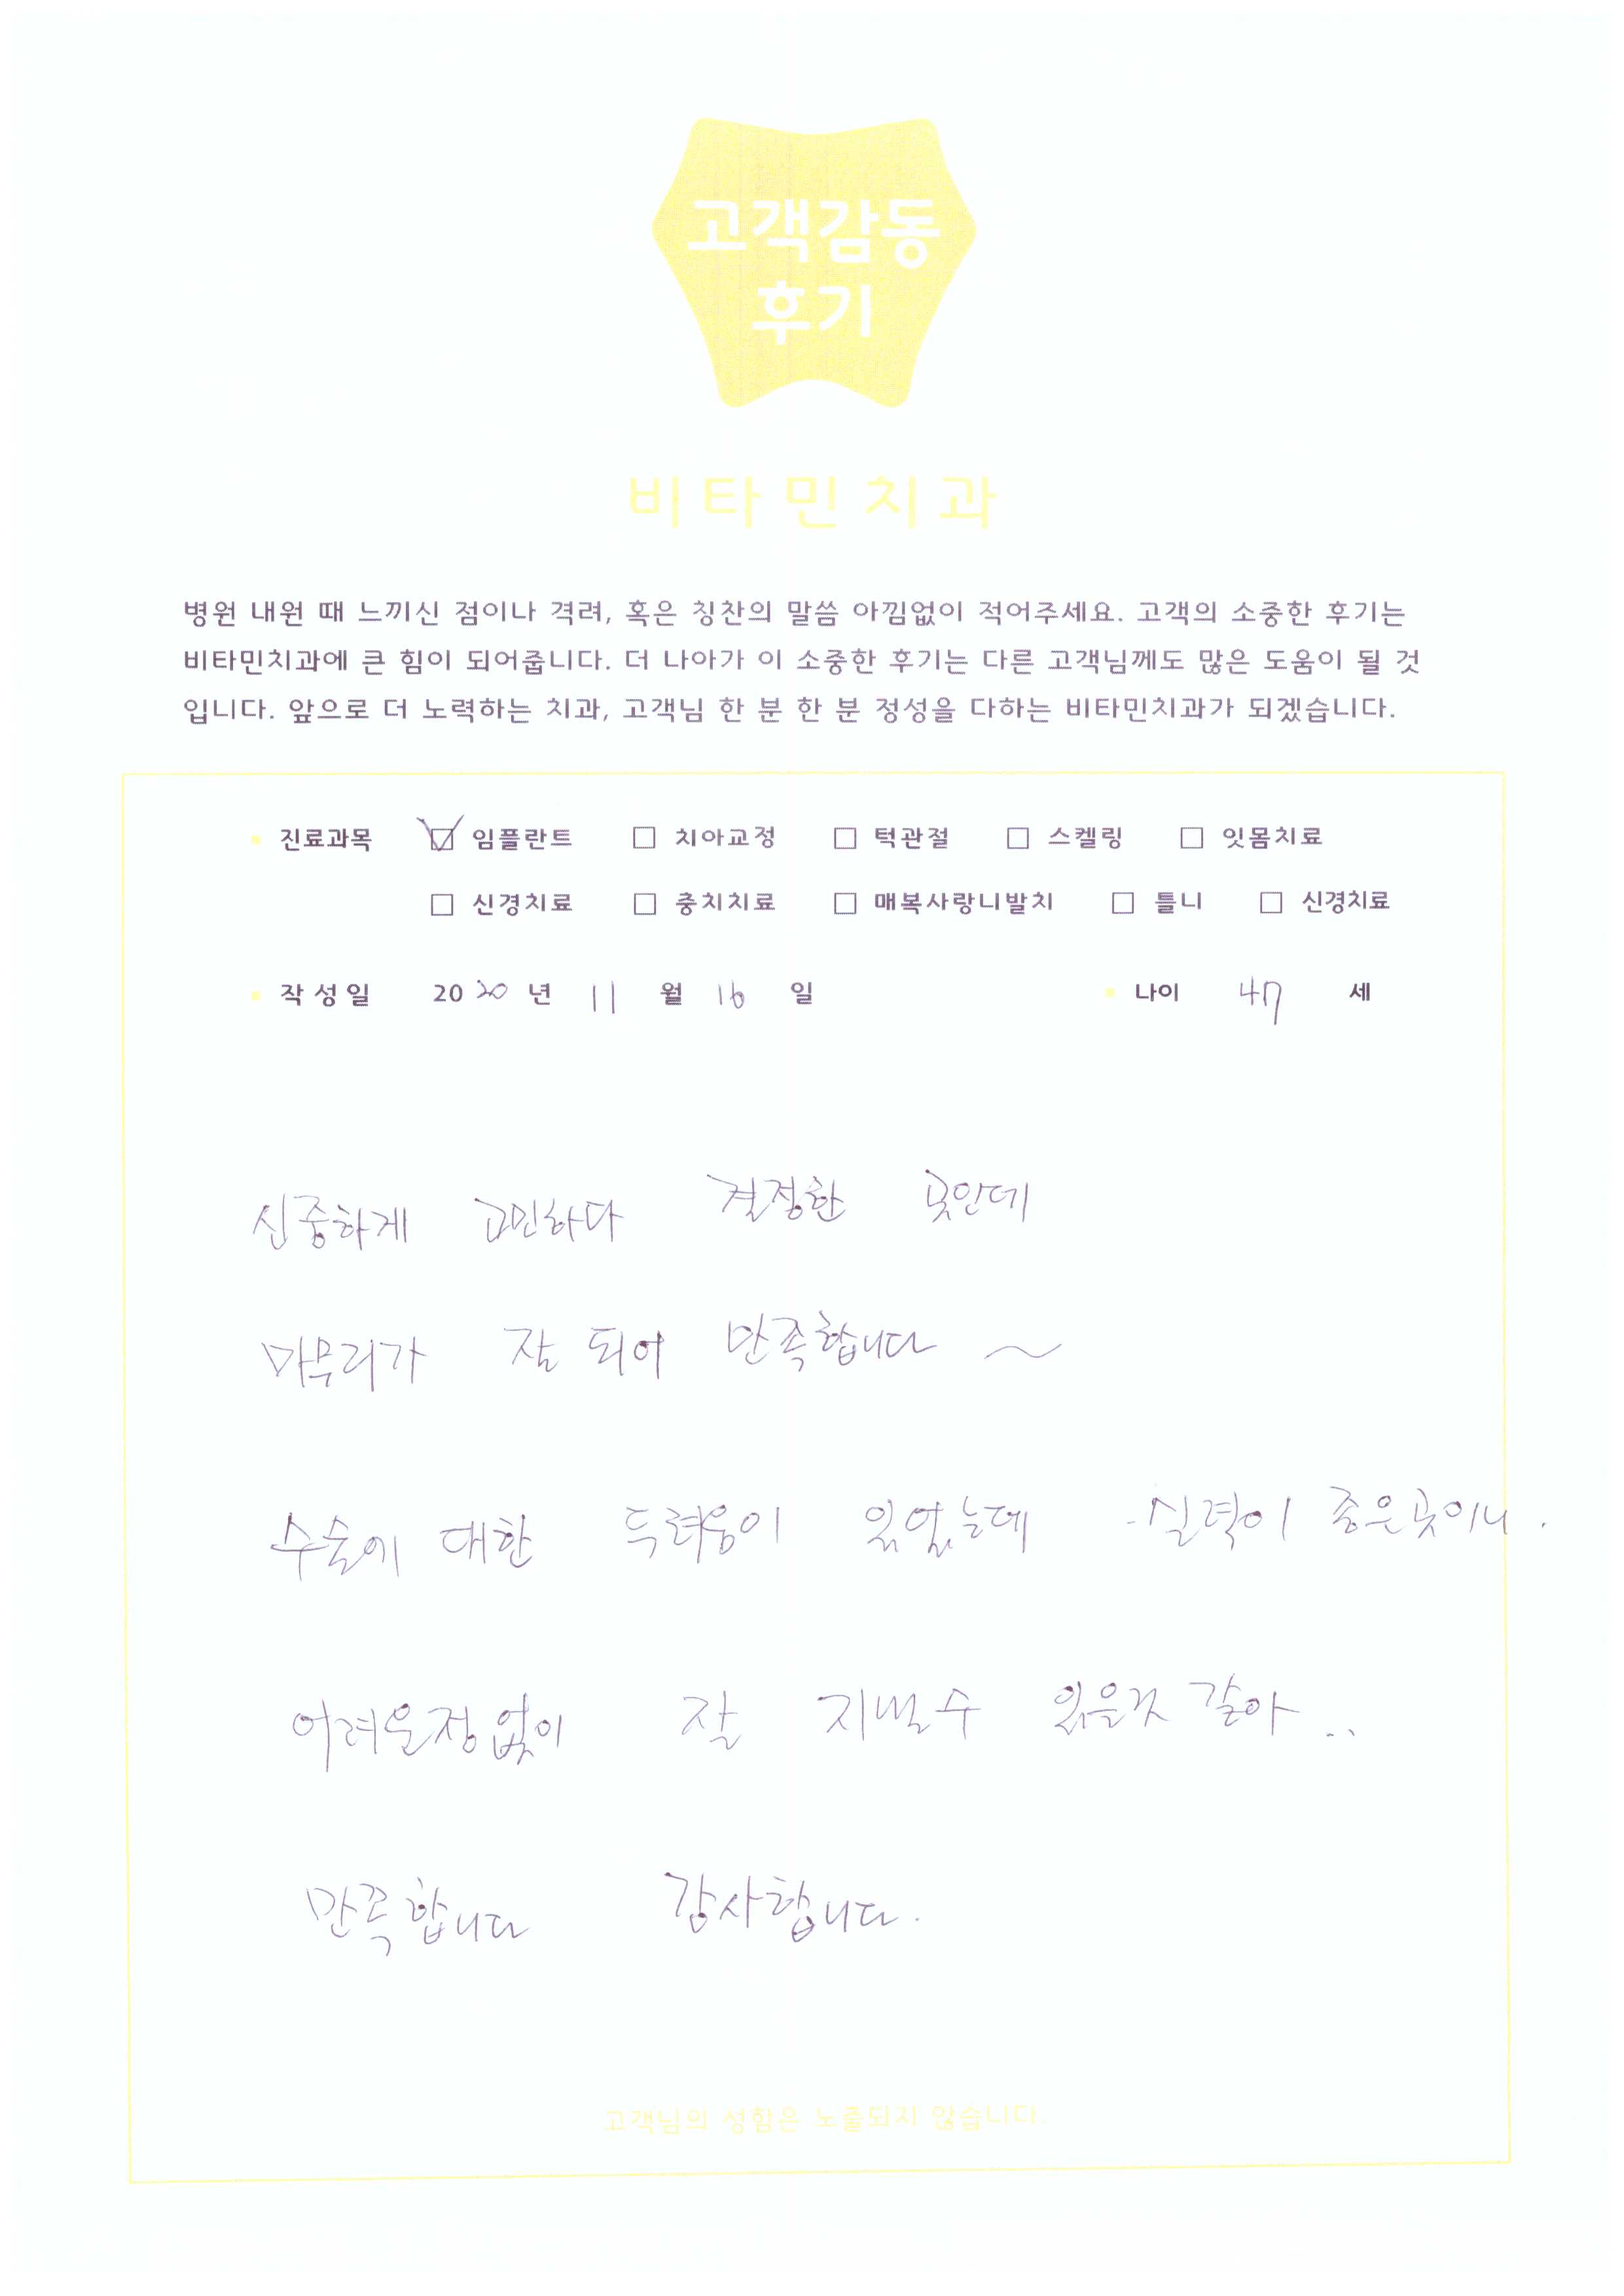 고객감동
후기
비타민치과
병원 내원 때 느끼신 점이나 격려, 혹은 칭찬의 말씀 아낌없이 적어주세요. 고객의 소중한 후기는
비타민치과에 큰 힘이 되어줍니다. 더 나아가 이 소중한 후기는 다른 고객님께도 많은 도움이 될 것
입니다. 앞으로 더 노력하는 치과, 고객님 한 분 한 분 정성을 다하는 비타민치과가 되겠습니다.
진료과목 ☑ 임플란트 □ 치아교정 □ 턱관절 □ 스켈링 □ 잇몸치료
□ 신경치료 □ 충치치료 □ 매복사랑니발치 □ 틀니 □ 신경치료
작성일 2020 년 11 월 16 일 나이 47 세
신중하게 고민하다 결정한 곳인데
마무리가 잘 되어 만족합니다 ~
수술에 대한 두려움이 있었는데 실력이 좋은곳이니.
어려운점없이 잘 지낼수 있을것 같아..
만족합니다 감사합니다.
고객님의 성함은 노출되지 않습니다